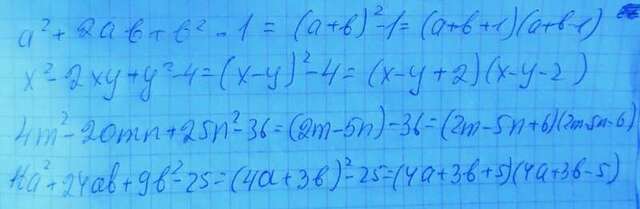 a² + 2ab + b² - 1 = (a+b)² - 1 = (a+b+1)(a+b-1)
x² - 2xy + y² - 4 = (x-y)² - 4 = (x-y+2)(x-y-2)
4m² - 20mn + 25n² - 36 = (2m-5n) - 36 = (2m-5n+6)(2m-5n-6)
16a² + 24ab + 9b² - 25 = (4a+3b)² - 25 = (4a+3b+5)(4a+3b-5)